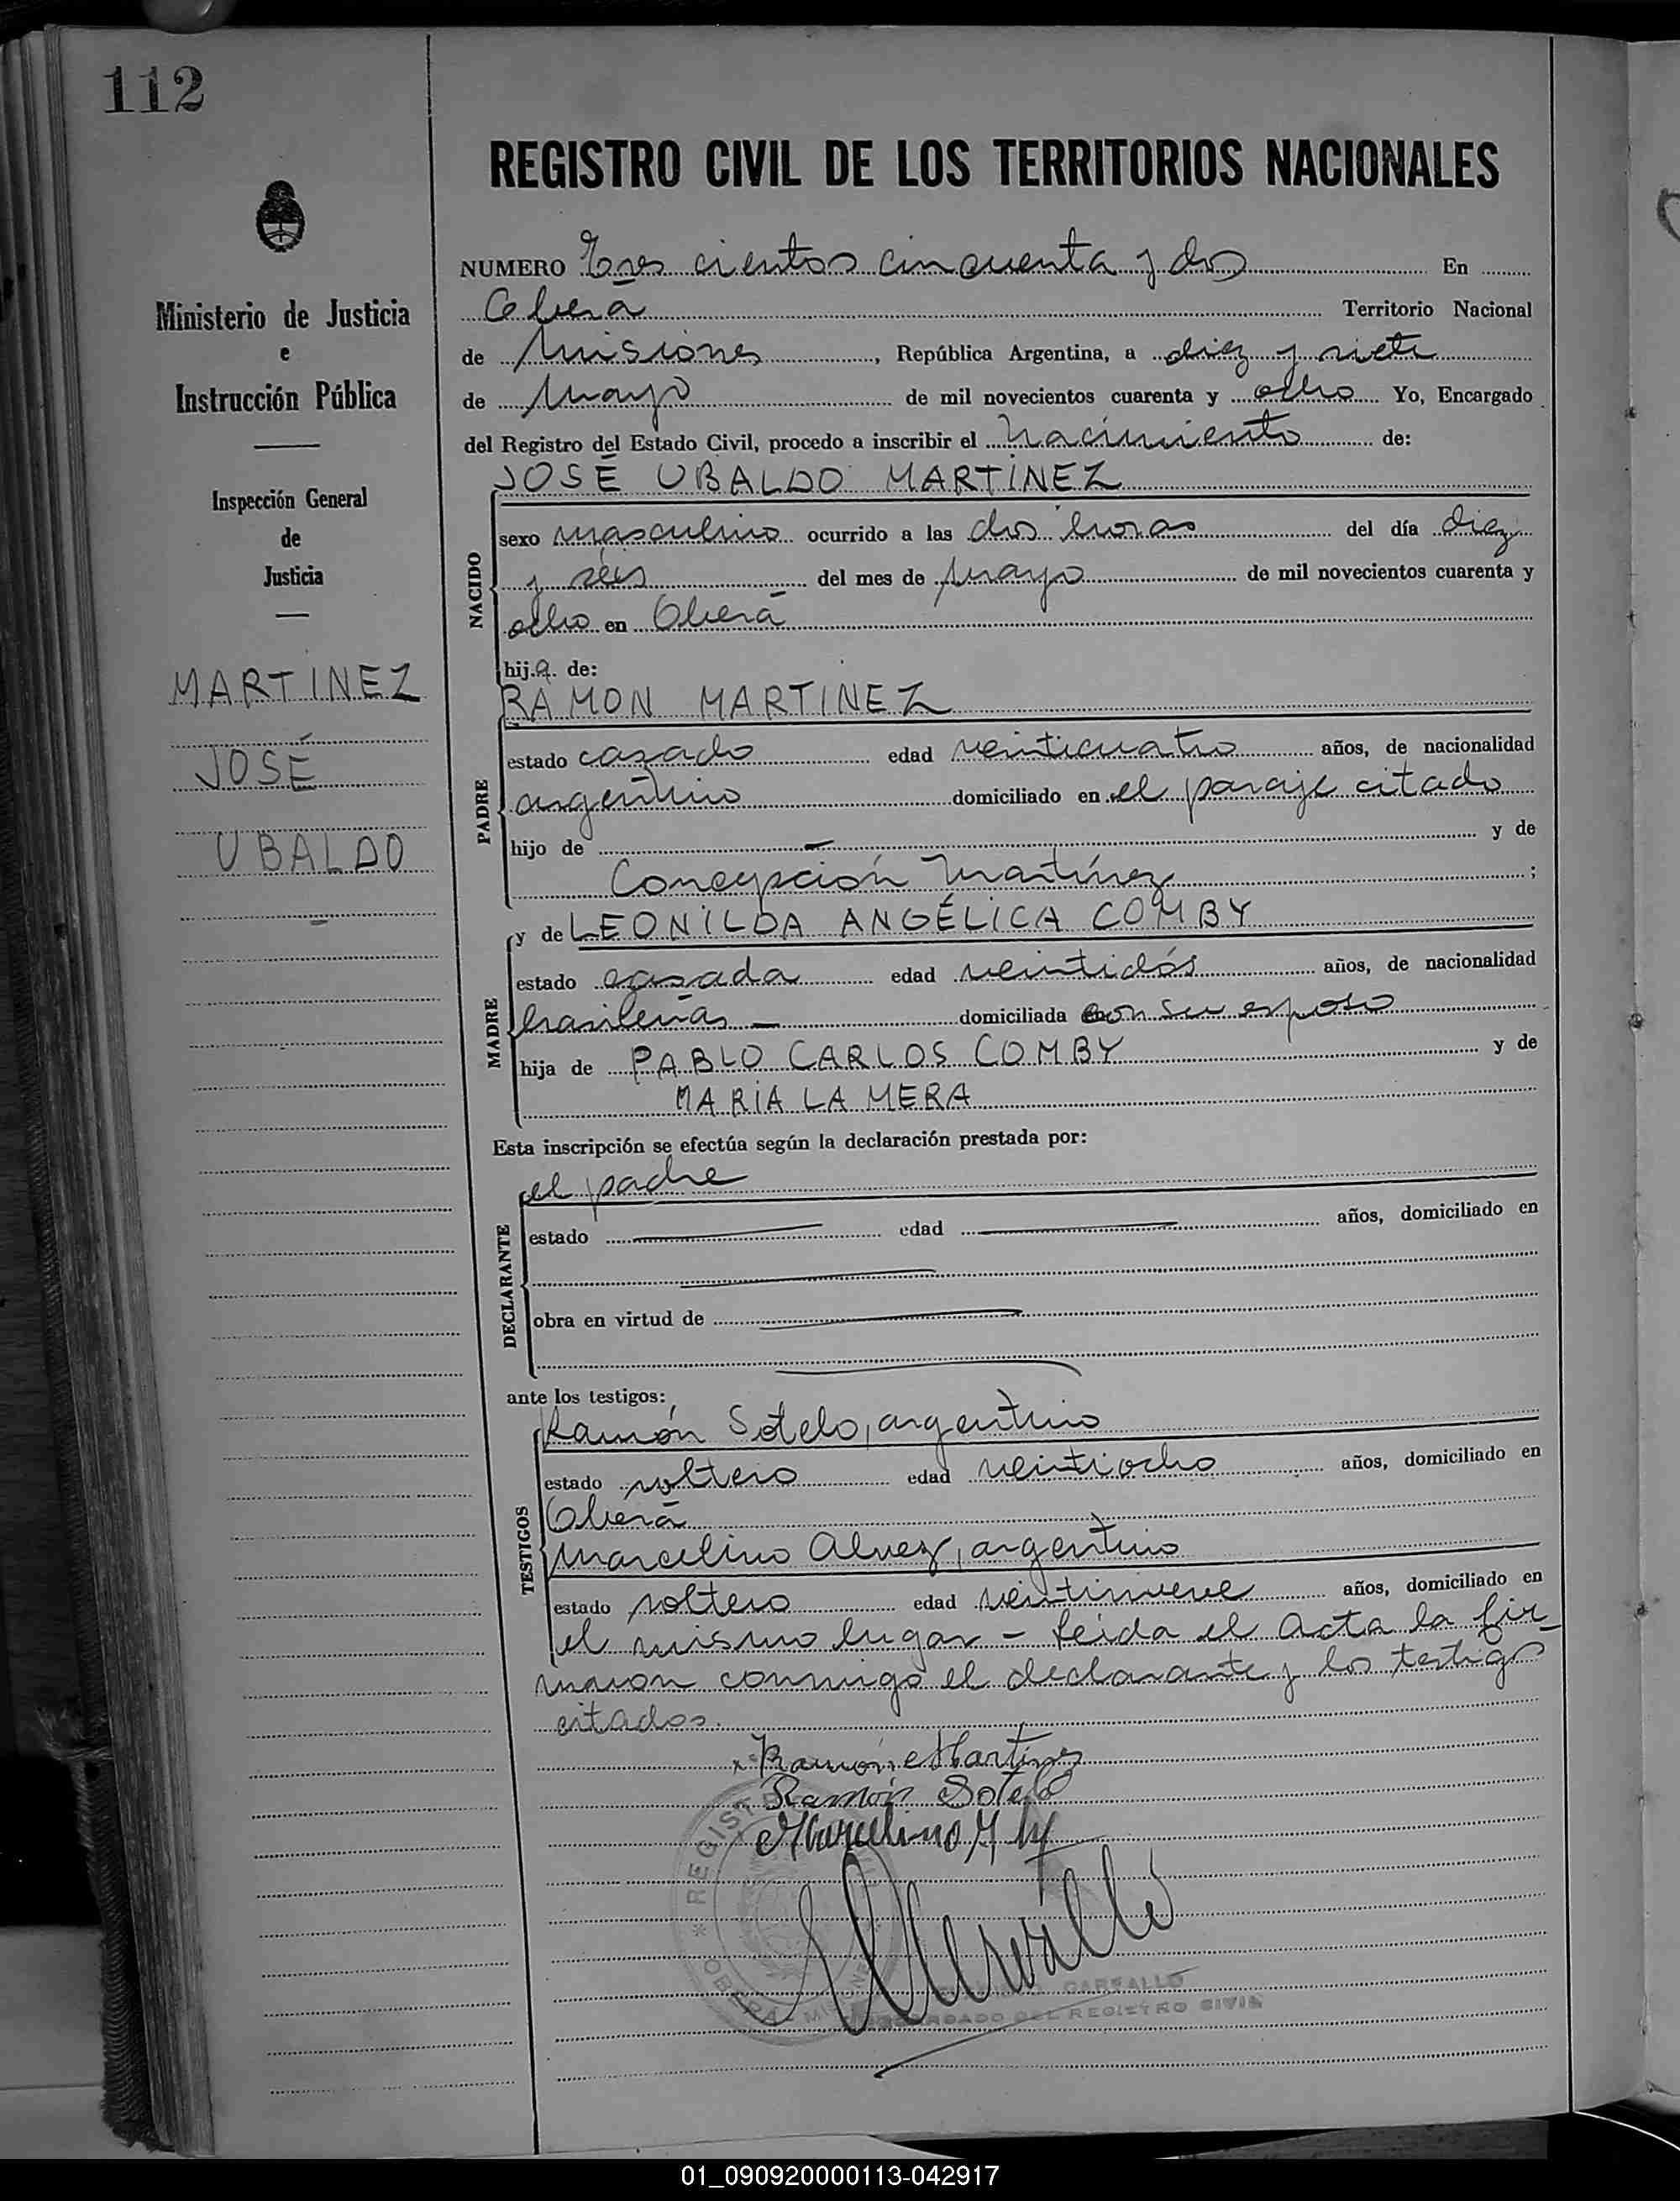 112
Ministerio de Justicia
e
Instrucción Pública
Inspección General
de
Justicia
MARTINEZ
JOSÉ
UBALDO
REGISTRO CIVIL DE LOS TERRITORIOS NACIONALES
NUMERO Tres cientos cincuenta y dos En
Oberá Territorio Nacional
de Misiones, República Argentina, a diez y siete
de Mayo de mil novecientos cuarenta y ocho Yo, Encargado
del Registro del Estado Civil, procedo a inscribir el nacimiento de:
JOSÉ UBALDO MARTÍNEZ
NACIDO
sexo masculino ocurrido a las dos horas del día diez
y seis del mes de Mayo de mil novecientos cuarenta y
ocho en Oberá
hijo de:
RAMON MARTINEZ
PADRE
estado casado edad veinticuatro años, de nacionalidad
argentino domiciliado en el paraje citado
hijo de — y de
Concepción Martínez ;
MADRE
y de LEONILDA ANGÉLICA COMBY
estado casada edad veintidós años, de nacionalidad
brasileña — domiciliada con su esposo
hija de PABLO CARLOS COMBY y de
MARIA LA MERA
Esta inscripción se efectúa según la declaración prestada por:
el padre
DECLARANTE
estado edad años, domiciliado en
obra en virtud de
ante los testigos:
Ramón Sotelo, argentino
TESTIGOS
estado soltero edad veintiocho años, domiciliado en
Oberá
Marcelino Alvez, argentino
estado soltero edad veintinueve años, domiciliado en
el mismo lugar – leida el acta la fir-
maron conmigo el declarante y los testigos
citados.
Ramón Martínez
Ramón Sotelo
Marcelino
REGISTRO
OBERA MISIONES
CARVALLO
ENCARGADO DEL REGISTRO CIVIL
01_090920000113-042917